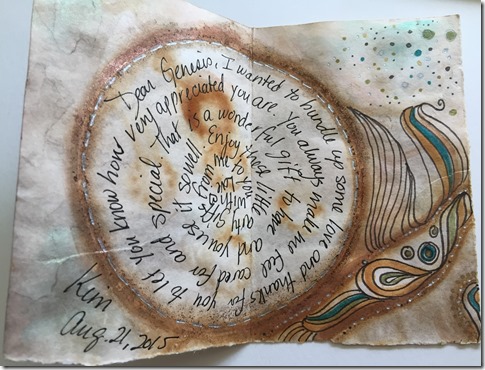 Dear Genesis, I wanted to bundle up some love and thanks for you to let you know how very appreciated you are. You always make me feel cared for and special. That is a wonderful gift to have and you use it so well. Enjoy these little arty gifts
Kim
Aug. 21, 2015